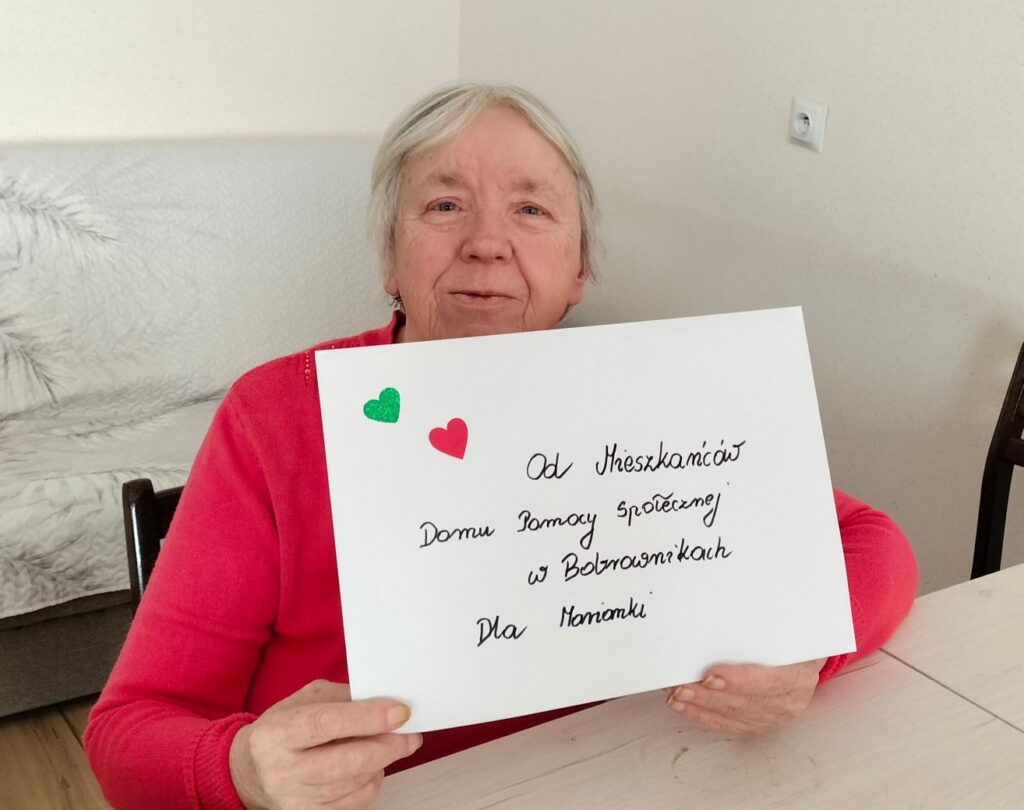 Od Mieszkańców
Domu Pomocy Społecznej
w Bobrownikach
Dla Marianki